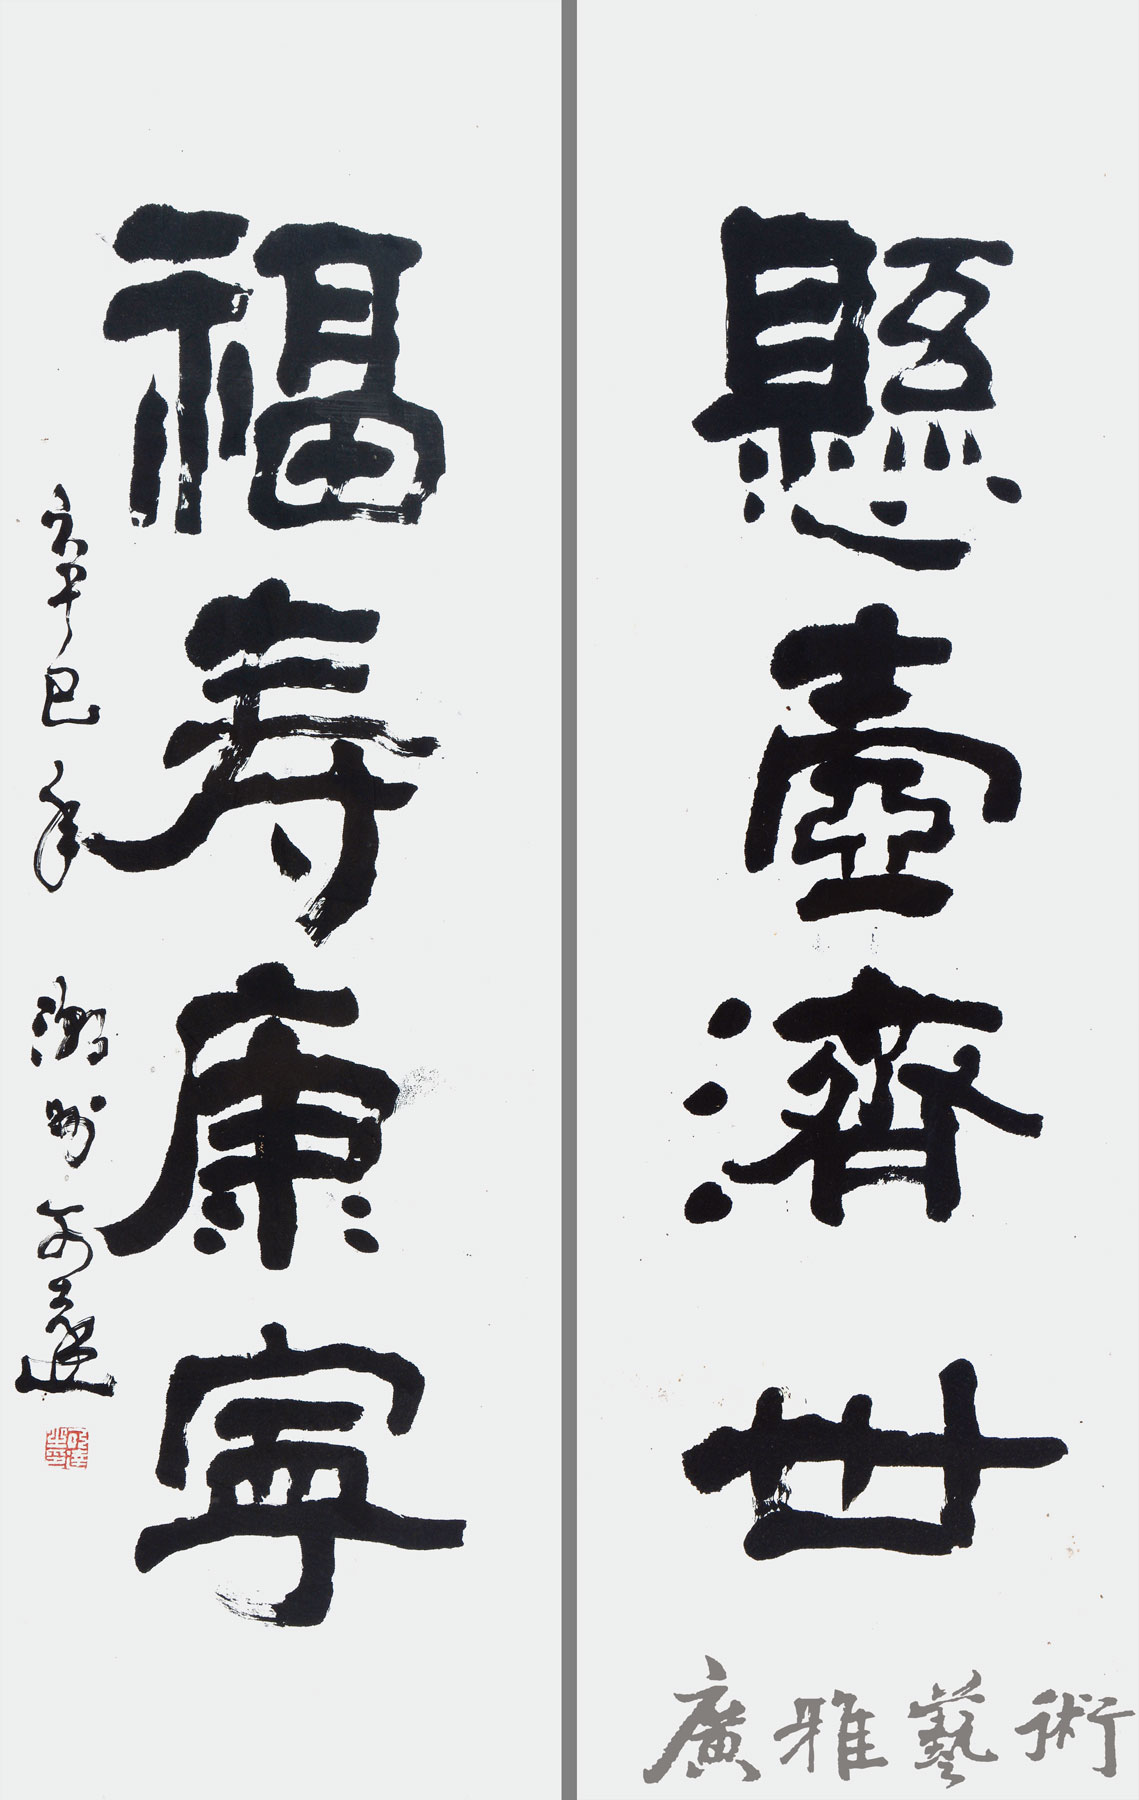 懸壺濟世
福寿康寧
辛巳年 潮州
廣雅藝術